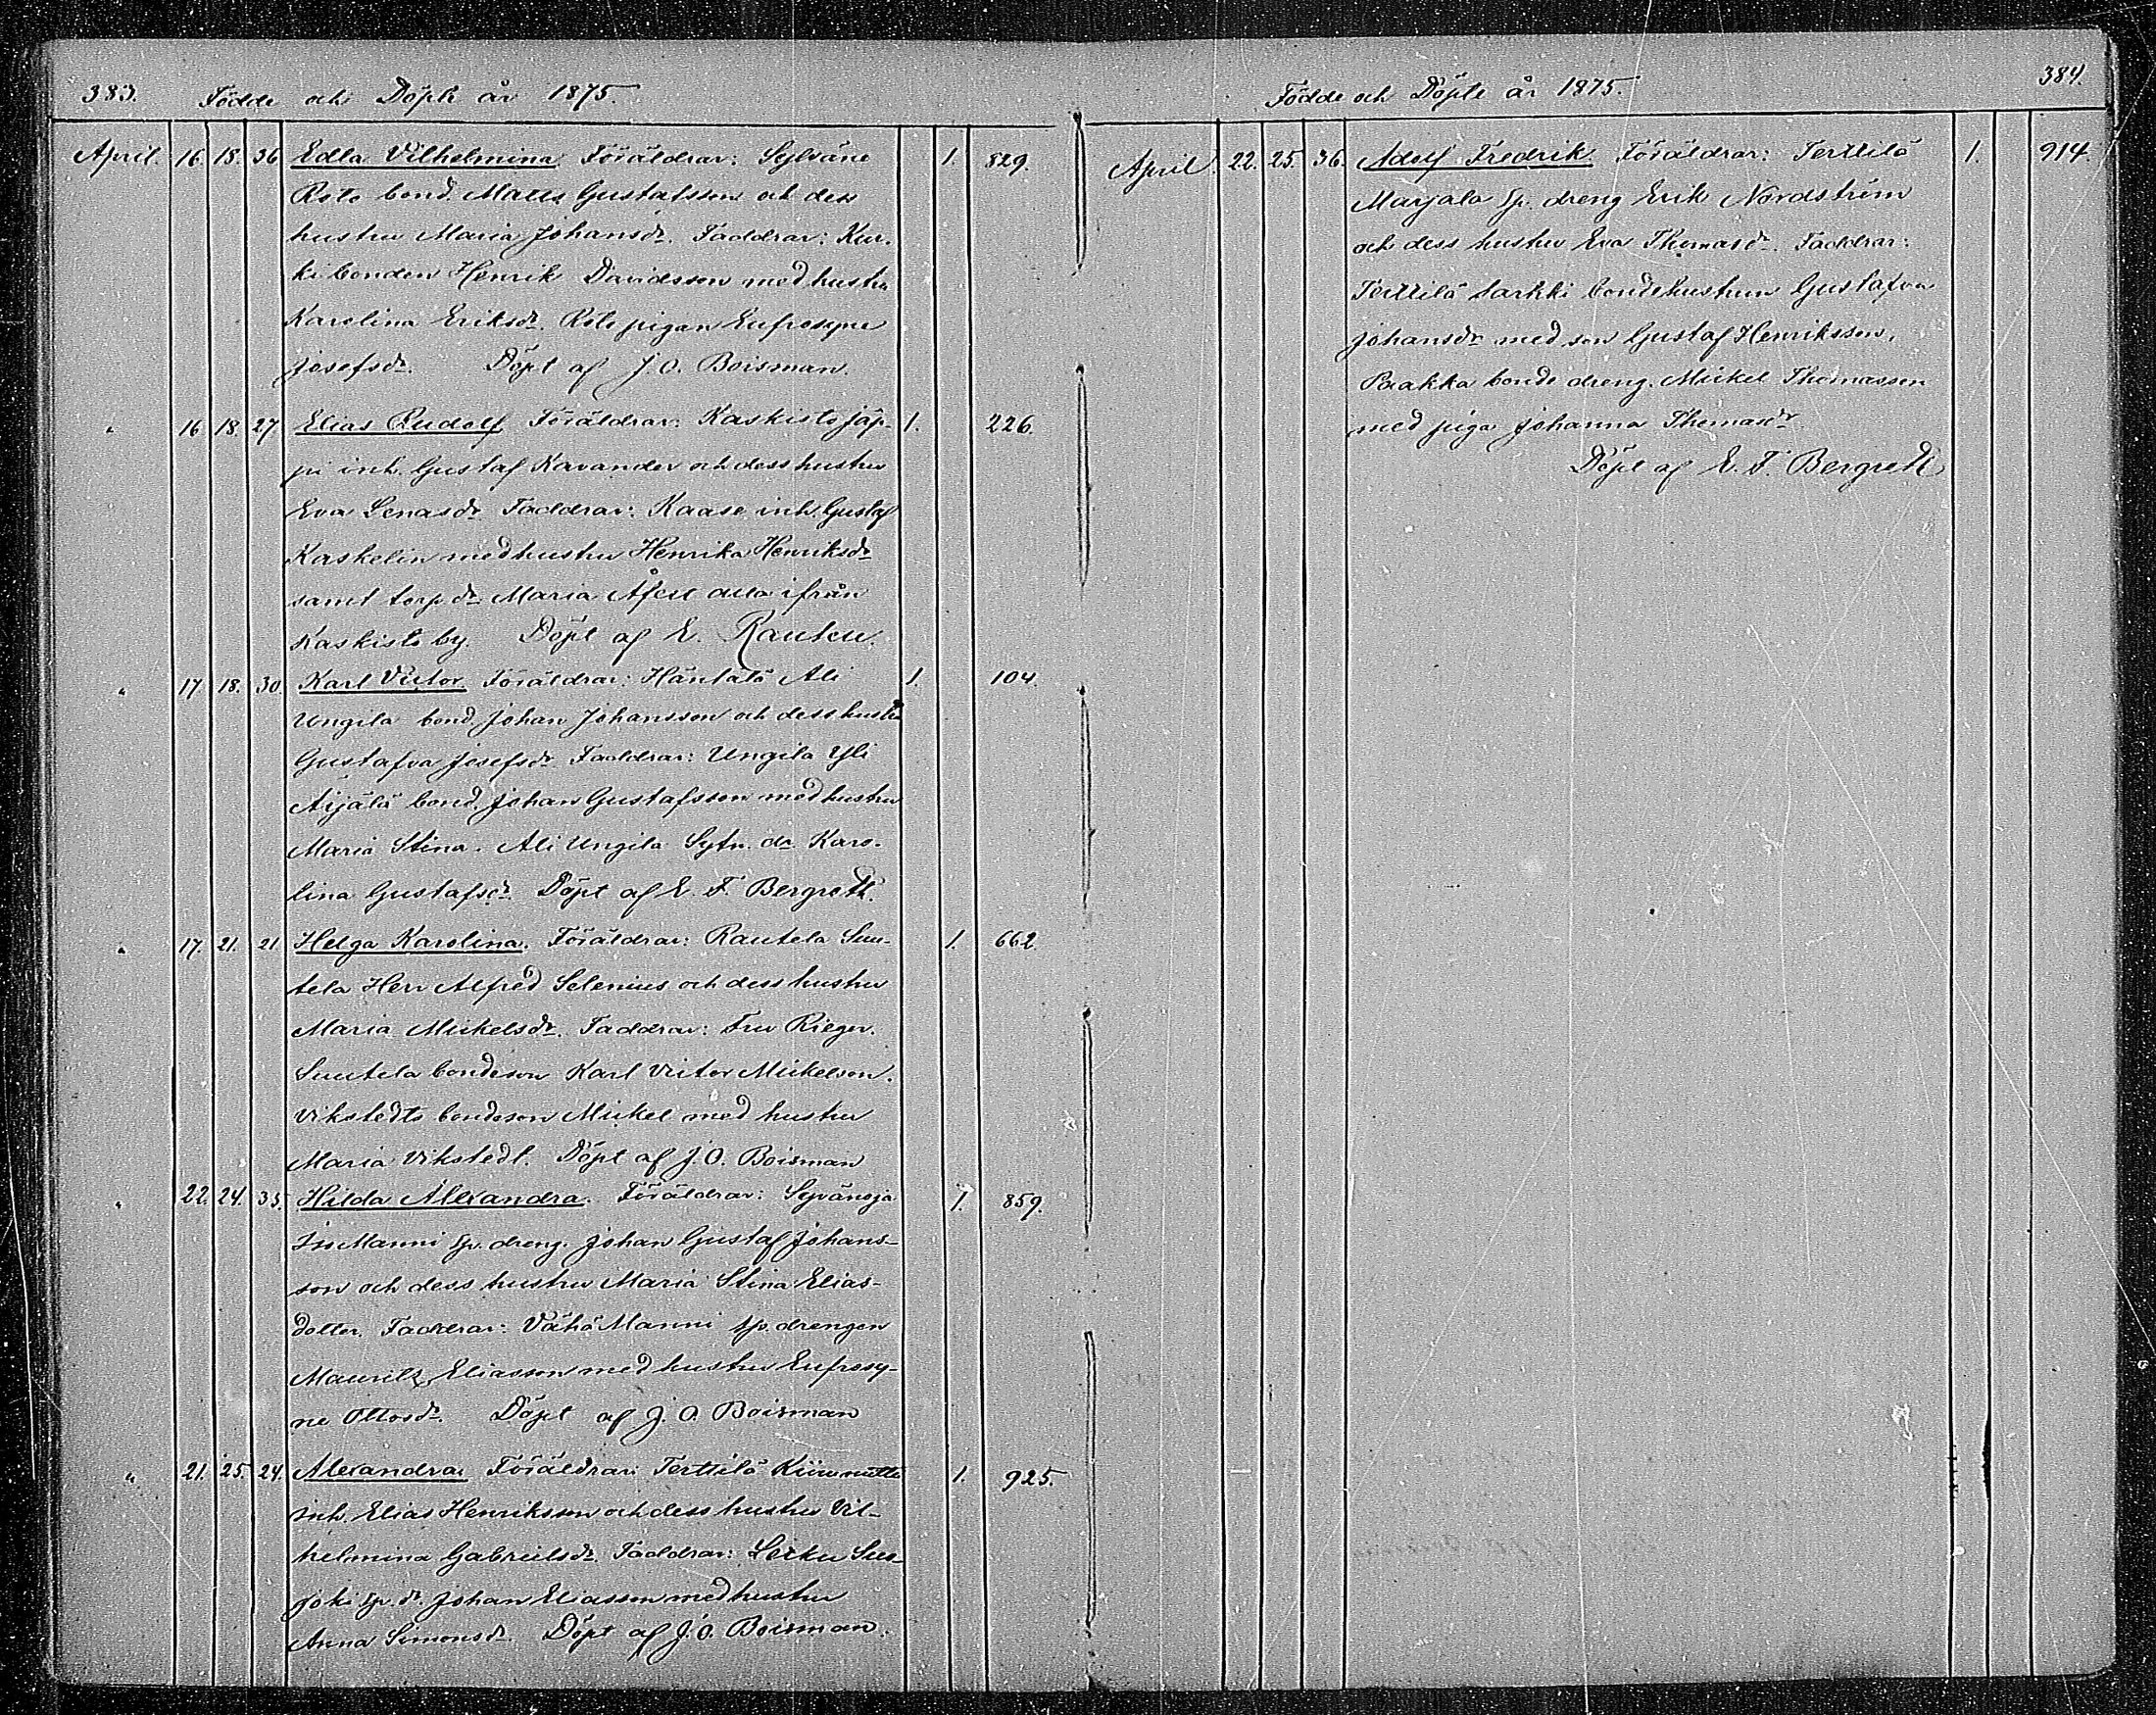 383. Födde och Döpte år 1875.
April. 16. 18. 36 Edla Vilhelmina Föräldrar: Sylväne 1. 829.
Roto bond. Matts Gustafsson och dess
hustru Maria Johansdr. Faddrar: Kur-
ki bonden Henrik Davidsson med hustru
Karolina Eriksdr. Roto pigan Eufrosyne
Josefsdr. Döpt af J. O. Boisman.
" 16 18. 27 Elias Rudolf Föräldrar: Kaskisto Jäp- 1. 226.
pi inh. Gustaf Kavander och dess hustru
Eva Lenasdr Faddrar: Kaase inh. Gustaf
Kaskelin med hustru Henrika Henriksdr
samt torp. dr Maria Åfelt alla ifrån
Kaskisto by. Döpt af E. Rauten.
" 17 18. 30. Karl Victor Föräldrar: Häntälä Ali 1. 104.
Ungila bond. Johan Johansson och dess hustru
Gustafva Josefsdr Faddrar: Ungila Yli
Äijälä bond. Johan Gustafsson med hustru
Maria Stina. Ali Ungila Sytn. dr Karo-
lina Gustafsdr. Döpt af E. F. Bergroth.
" 17. 21. 21. Helga Karolina. Föräldrar: Rautela Suu- 1. 662.
tela Herr Alfred Selenius och dess hustru
Maria Mickelsdr. Faddrar: Fru Rieger.
Suutela bondeson Karl Victor Mickelson.
Vikstedts bondeson Mickel med hustru
Maria Vikstedt. Döpt af J. O. Boisman
" 22. 24. 35. Hilda Alexandra. Föräldrar: Syvänoja 1. 859.
Iso Manni sp. dreng. Johan Gustaf Johans-
son och dess hustru Maria Stina Elias-
dotter. Faddrar: Vähä Manni sp. drengen
Maurilz Eliasson med hustru Eufrosy-
ne Ottosdr. Döpt af J. O. Boisman
" 21. 25. 24. Alexandra Föräldrar: Terttilä 1. 925.
inh. Elias Henriksson och dess hustru Vil-
helmina Gabrielsdr. Faddrar: Leiku Suo-
joki sp. dr. Johan Eliasson med hustru
Anna Simonsdr. Döpt af J. O. Boisman.
Födde och Döpte år 1875. 384.
April. 22. 25. 36. Adolf Fredrik Föräldrar: Terttilä 1. 914.
Marjala sp. dreng Erik Nordström
och dess hustru Eva Thomasdr. Faddrar:
Terttilä Sarkki bondehustrun Gustafva
Johansdr med son Gustaf Henriksson,
Paakka bonde dreng. Mickel Thomasson
med piga Johanna Thomasdr
Döpt af E. F. Bergroth